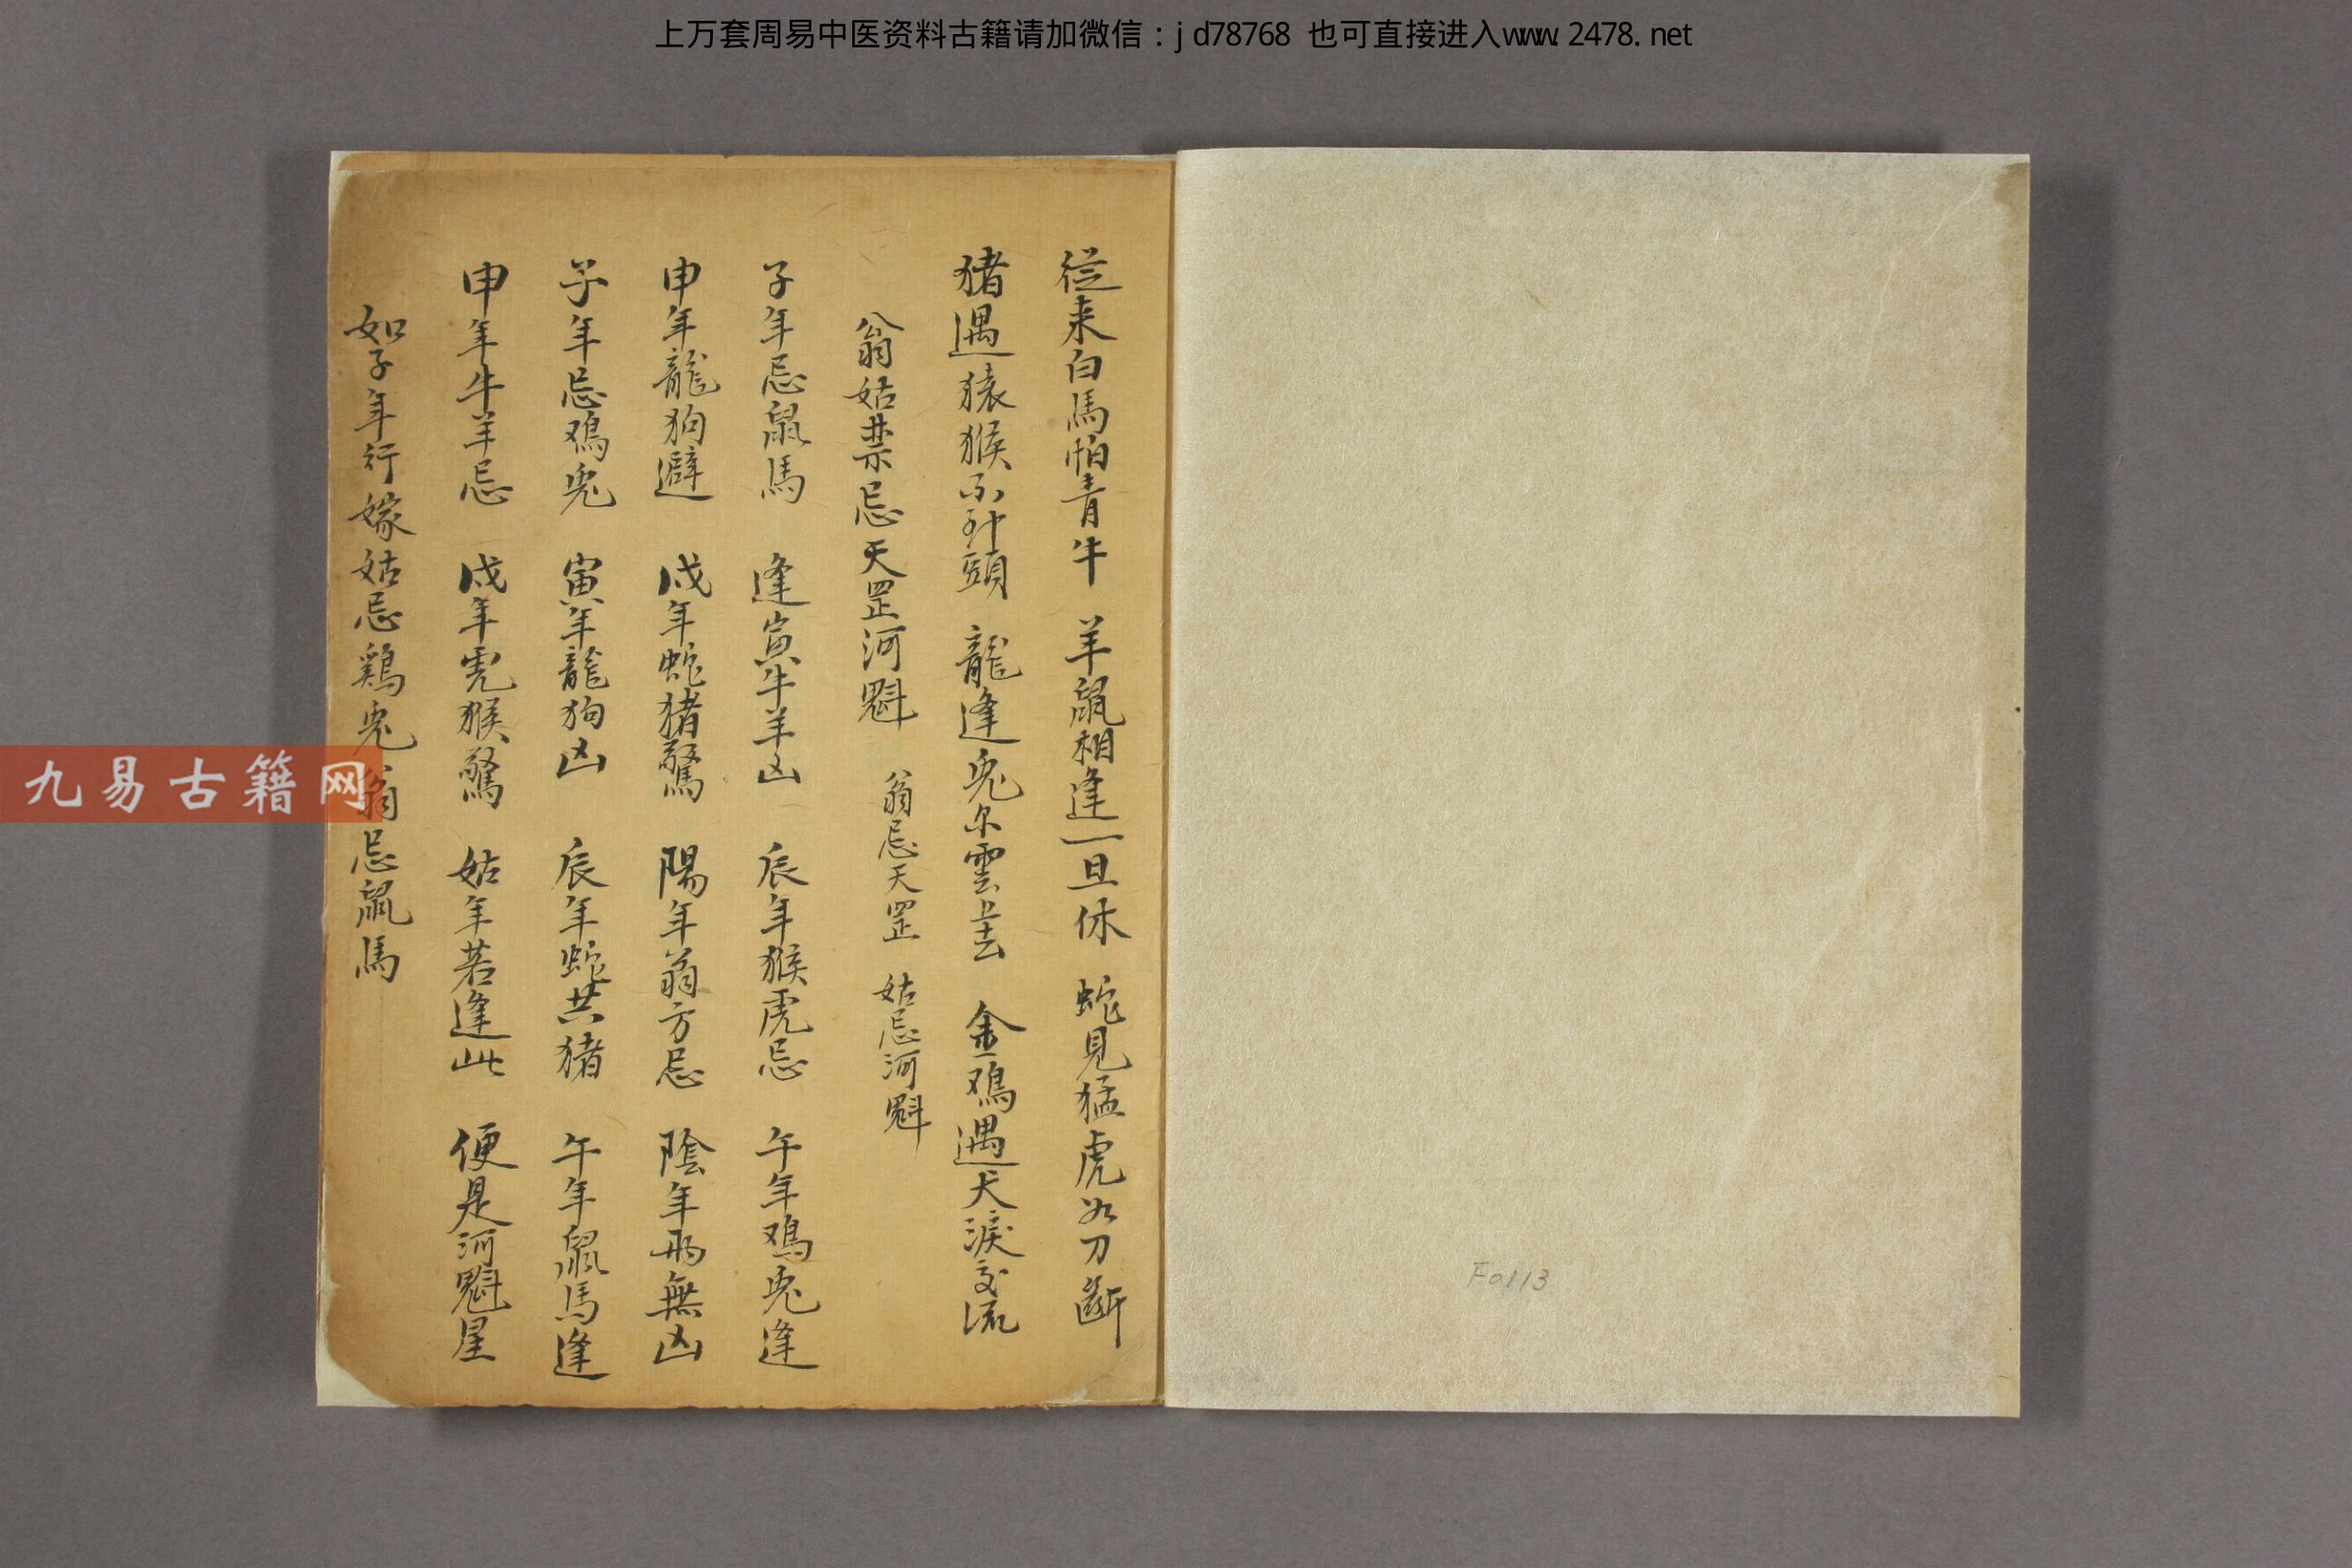 上万套周易中医资料古籍请加微信：jd78768 也可直接进入www.2478.net
從来白馬怕青牛 羊鼠相逢一旦休 蛇見猛虎如刀斷
猪遇猿猴不到頭 龍逢兎尔雲上去 金鳮遇犬淚交流
翁姑禁忌天罡河魁 翁忌天罡 姑忌河魁
子年忌鼠馬 逢寅牛羊凶 辰年猴虎忌 午年鳮兎逢
申年龍狗避 戍年蛇猪驚 陽年翁方忌 陰年兩無凶
子年忌鳮兎 寅年龍狗凶 辰年蛇共猪 午年鼠馬逢
申年牛羊忌 戍年虎猴驚 姑年若逢此 便是河魁星
如子年行嫁姑忌鷄兎翁忌鼠馬
九易古籍网
F0113